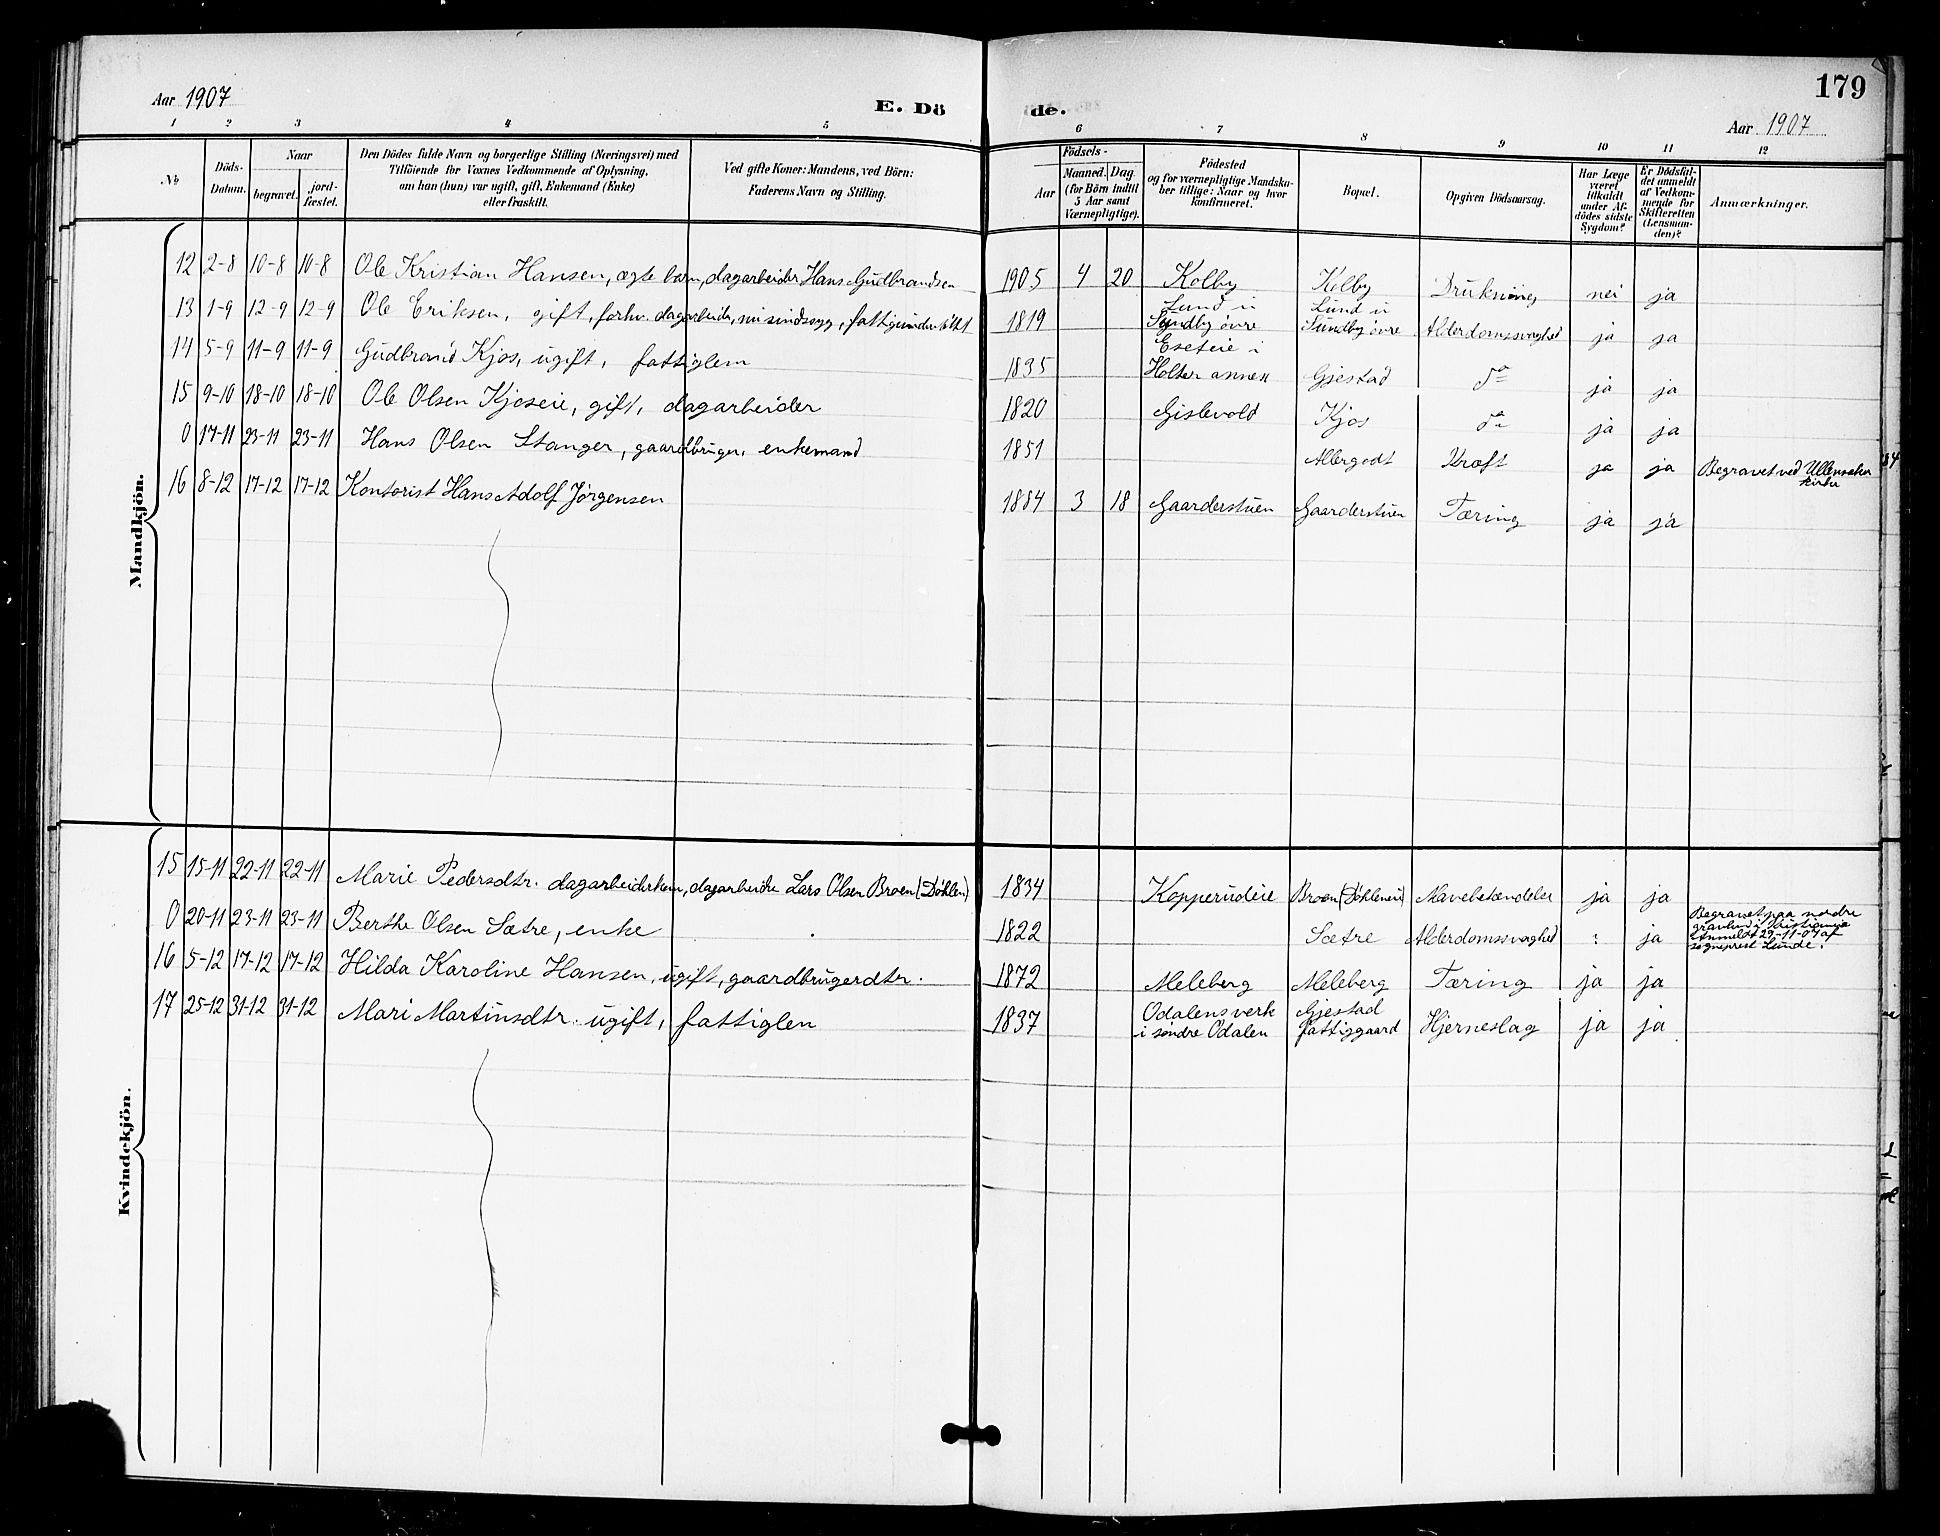 Aar 1907
E. Dö
de.
179
Aar 1907
1 2 3 4 5 6 7 8 9 10 11 12
No
Döds-Datum.
Naar
begravet.
jord-fæstet.
Den Dödes fulde Navn og borgerlige Stilling (Næringsvei) med
Tilföiende for Voxnes Vedkommende af Oplysning,
om han (hun) var ugift, gift, Enkemand (Enke)
eller fraskilt.
Ved gifte Koner: Mandens, ved Börn:
Faderens Navn og Stilling.
Födsels-
Aar
Maaned. Dag.
(for Börn indtil
5 Aar samt
Værnepligtige).
Födested
og for værnepligtige Mandska-
ber tillige: Naar og hvor
konfirmeret.
Bopæl.
Opgiven Dödsaarsag.
Har Læge
været
tilkaldt
under Af-
dödes sidste
Sygdom?
Er Dödsfal-
det anmeldt
af Vedkom-
mende for
Skifteretten
(Lensman-
den)?
Anmærkninger.
Mandkjön.
12 2-8 10-8 10-8 Ole Kristian Hansen, ægte barn, dagarbeider Hans Gudbrandsen 1905 4 20 Kolby Kolby Drukning nei ja
13 1-9 12-9 12-9 Ole Eriksen, gift, forhv. dagarbeider, nu sindssyg, fattigunderstøtt 1819 Lund u Sundby øvre Lund u Sundby øvre Alderdomssvaghed ja ja
14 5-9 11-9 11-9 Gudbrand Kjos, ugift, fattiglem 1835 Eseteie i Holter annex Gjestad do ja ja
15 9-10 18-10 18-10 Ole Olsen Kjoseie, gift, dagarbeider 1820 Gislevold Kjos do ja ja
0 17-11 23-11 23-11 Hans Olsen Stanger, gaardbruger, enkemand 1851 Allergodt Kræft ja ja Begravet ved Ullensaker kirke
16 8-12 17-12 17-12 Kontorist Hans Adolf Jørgensen 1884 3 18 Gaarderstuen Gaarderstuen Tæring ja ja
Kvindekjön.
15 15-11 22-11 22-11 Marie Pedersdtr. dagarbeiderkone, dagarbeider Lars Olsen Broen (Døhlen) 1834 Kopperudeie Broen (Døhleneie) Mavebetændelse ja ja
0 20-11 23-11 23-11 Berthe Olsen Sætre, enke 1822 Sætre Alderdomssvaghed ? ja Begravet paa nordre
gravlund i Kristiania
Anmeldt 29-11-07 af
sogneprest Lunde.
16 5-12 17-12 17-12 Hilda Karoline Hansen, ugift, gaardbrugerdtr. 1872 Meleberg Meleberg Tæring ja ja
17 25-12 31-12 31-12 Mari Martinsdtr. ugift, fattiglem 1837 Odalens verk i søndre Odalen Gjestad fattiggaard Hjerneslag ja ja